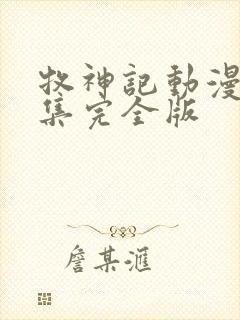 牧神記動漫
集完全版
詹某滙